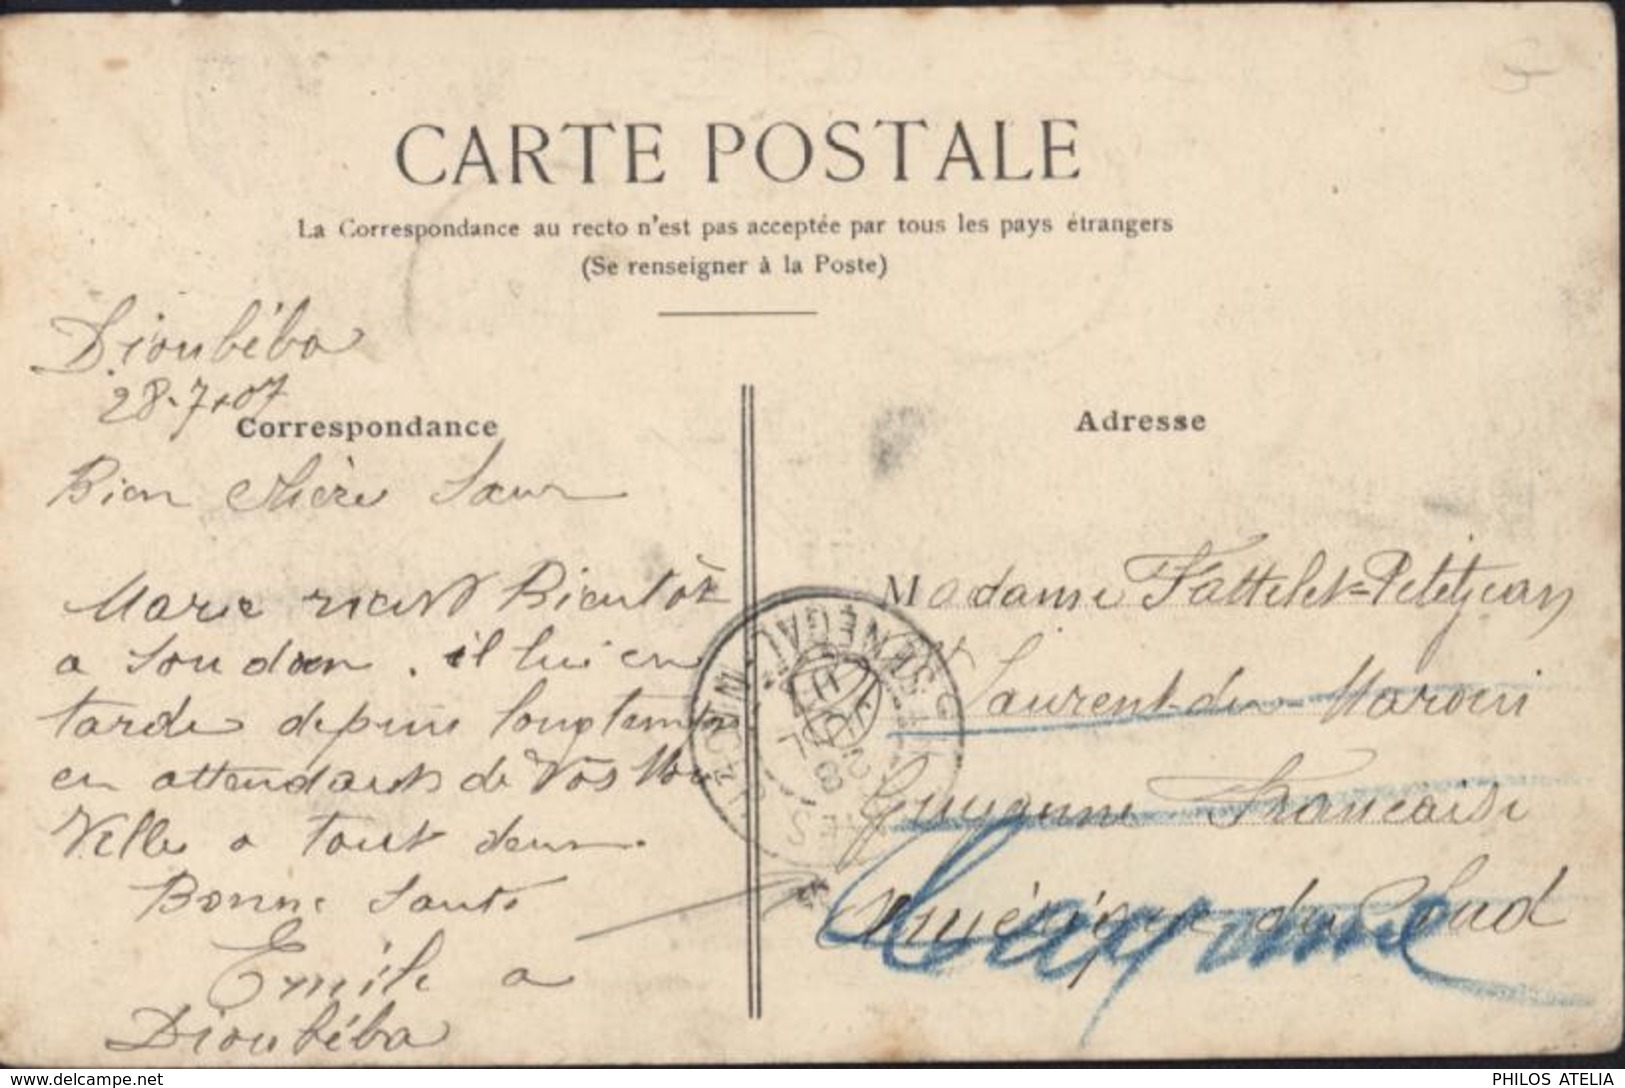 CARTE POSTALE
La Correspondance au recto n'est pas acceptée par tous les pays étrangers
(Se renseigner à la Poste)
Dioubéba
28-7-07
Correspondance
Bien chère Sœur
Marie vient Bientôt
a Soudan. il lui en
tarde depuis longtemps
en attendant de Vos Nou
Velle a tout deux.
Bonne Santé
Emile a
Dioubéba
Adresse
Madame Fattelet-Petitjean
St Laurent-du-Maroni
Guyanne Francaise
Amérique du Sud
Cayenne
SÉNÉGAL
PHILOS ATELIA